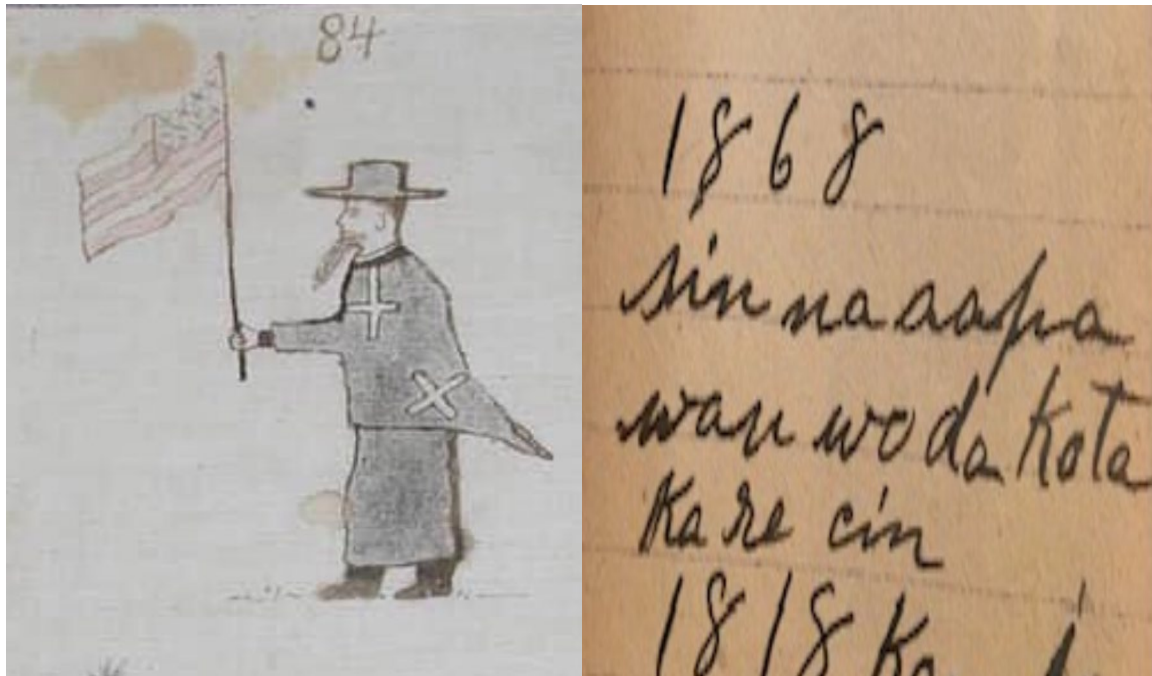 84
1868
sin na aapa
wan wo da Kota
Ka re cin
1818 Ka